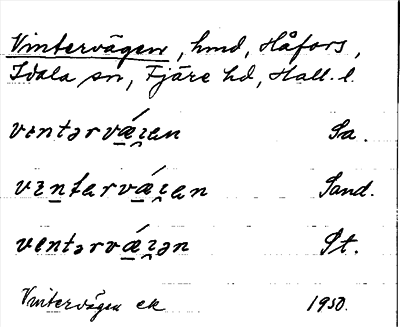 Vintervägen, hmd, Håfors,
Idala sn, Fjäre hd, Hall. l.
vɪntərvǽ̱ɪ̯en Sa.
vɪṉtərvǽ̱ɪ̯en Sand.
ventərvǽ̱ɪ̯ən St.
Vintervägen ek 1950.